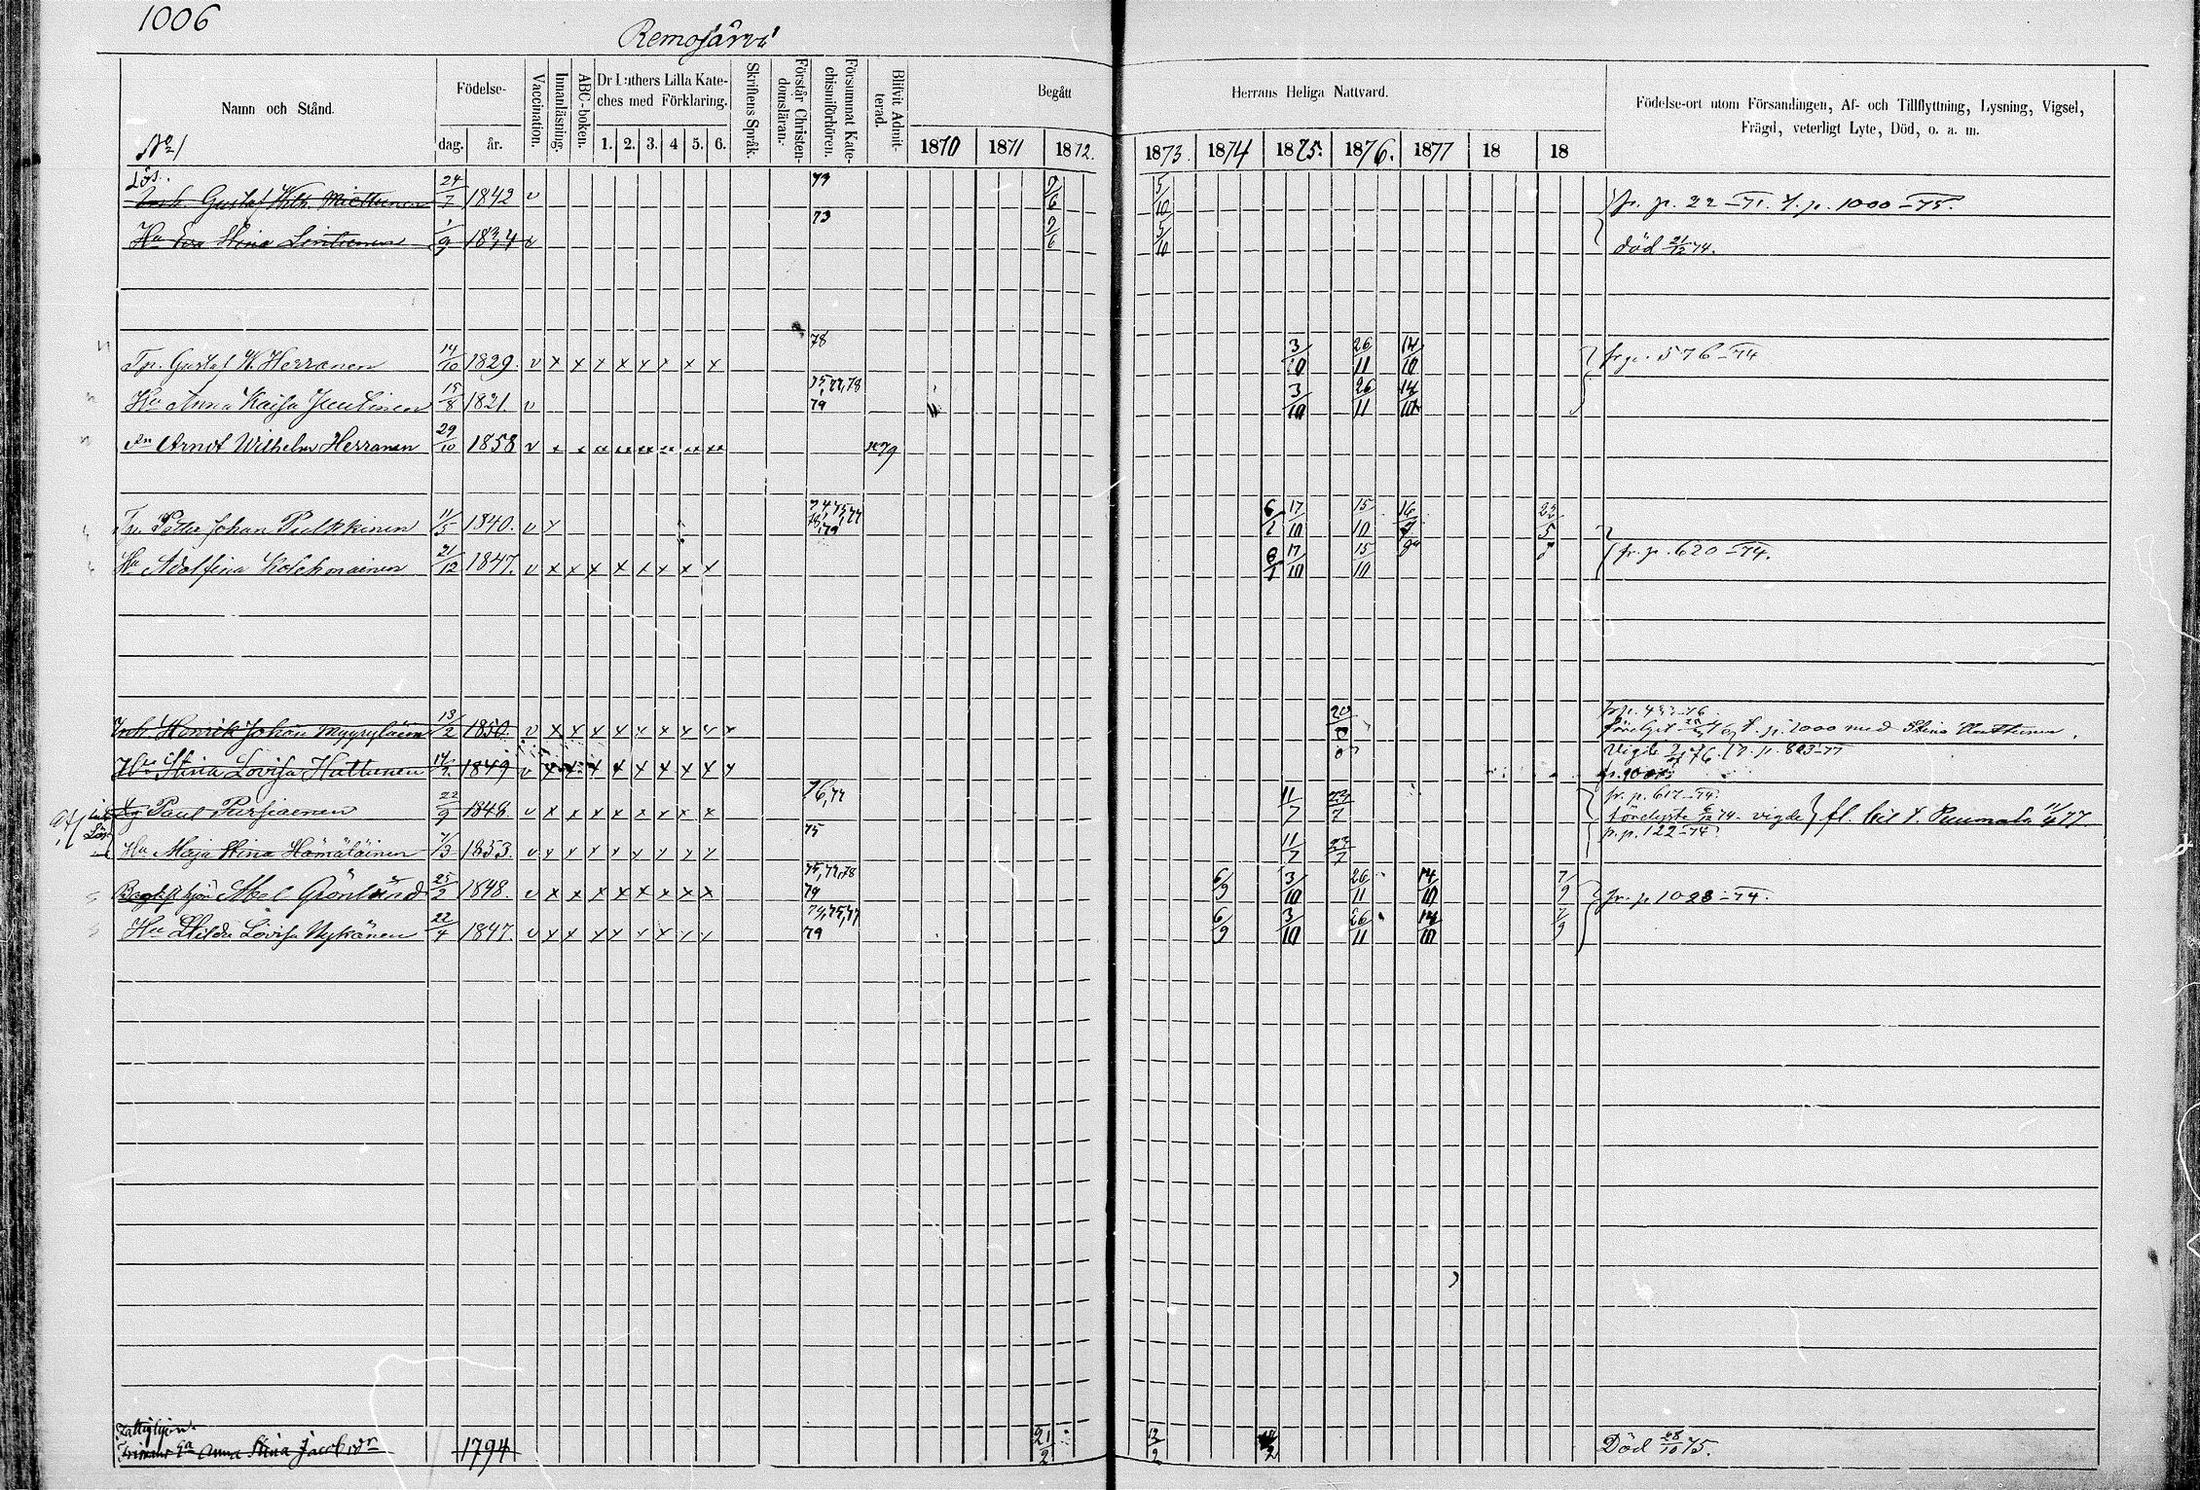 1006
Remojärvi
Namn och Stånd.
Födelse-
dag. år.
Vaccination.
Innanläsning.
ABC-boken.
Dr Luthers Lilla Kate-
ches med Förklaring.
1. 2. 3. 4 5. 6.
Skriftens Språk.
Förstår Christen-
domsläran.
Försummat Kate-
chismiförhören.
Blifvit Admit-
terad.
Begått
Herrans Heliga Nattvard.
1870 1871 1872. 1873. 1874 1875. 1876. 1877 18 18
Födelse-ort utom Församlingen, Af- och Tillflyttning, Lysning, Vigsel,
Frägd, veterligt Lyte, Död, o. a. m.
No 1
Lös.
Inh. Gustaf Wilh. Miettunen 24/7 1842 v 77 7/6 5/10 fr. p. 22-71. t. p. 1000-75.
Hu Eva Stina Lintunen 1/9 1834 v 73 7/6 5/10 död 21/12 74.
Tp. Gustaf W. Herranen 14/10 1829. v x x x x x x x 78 3/10 26/11 14/10 fr p. 576-74
Hu Anna Kaisa Jeutinen 15/8 1821. v 75, 77, 78 79 3/10 26/11 14/10
Sn Arndt Wilhelm Herranen 29/10 1858 v x x xx xx xx xx xx xx 1879
Petter Johan Pulkkinen 11/5 1840. v x 74, 75, 77 79 6/1 17/10 15/10 16/9 22/5
Hu Adolfina Kolehmainen 21/12 1847. v x x x x x x x x 6/1 17/10 15/10 fr. p. 620-74.
Inh. Henrik Johan Myyryläinen 13/2 1850. v x x x x x x x x t. p. 1000 med Stina Hattunen.
Hu Stina Lovisa Hattunen 14/7 1849 v x x x x x x x x Vigde 76. t. p. 803-77
Paul Pursiaenen 22/9 1848. v x x x x x x x x 76, 77 11/7 23/7 fr. p. 617-74. vigde fl. bit t. Puumala 11/4 77
Hu Maja Stina Hämäläinen 7/3 1853. v x x x x x x x x 75 11/7 23/7 p. p. 122-74
Abel Grönlund 25/2 1848. v x x x x x x x x 75, 77, 78 79 6/9 3/10 26/11 14/10 7/9 fr. p. 1023-74.
Hu Hilda Lovisa Nykänen 22/4 1847. v x x x x x x x x 74, 75, 77 79 6/9 3/10 26/11 14/10 7/9
Fattighjon.
Anna Stina Jacobsdr 1794 21/2 13/2 Död 28/10 75.